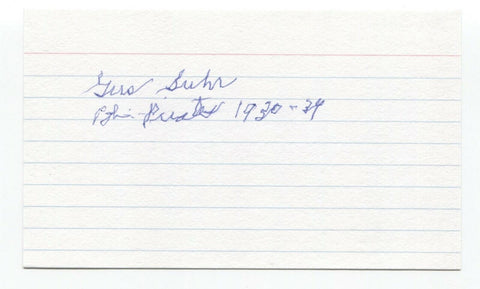 Gus Suhr
Pgh. Pirates 1930-39